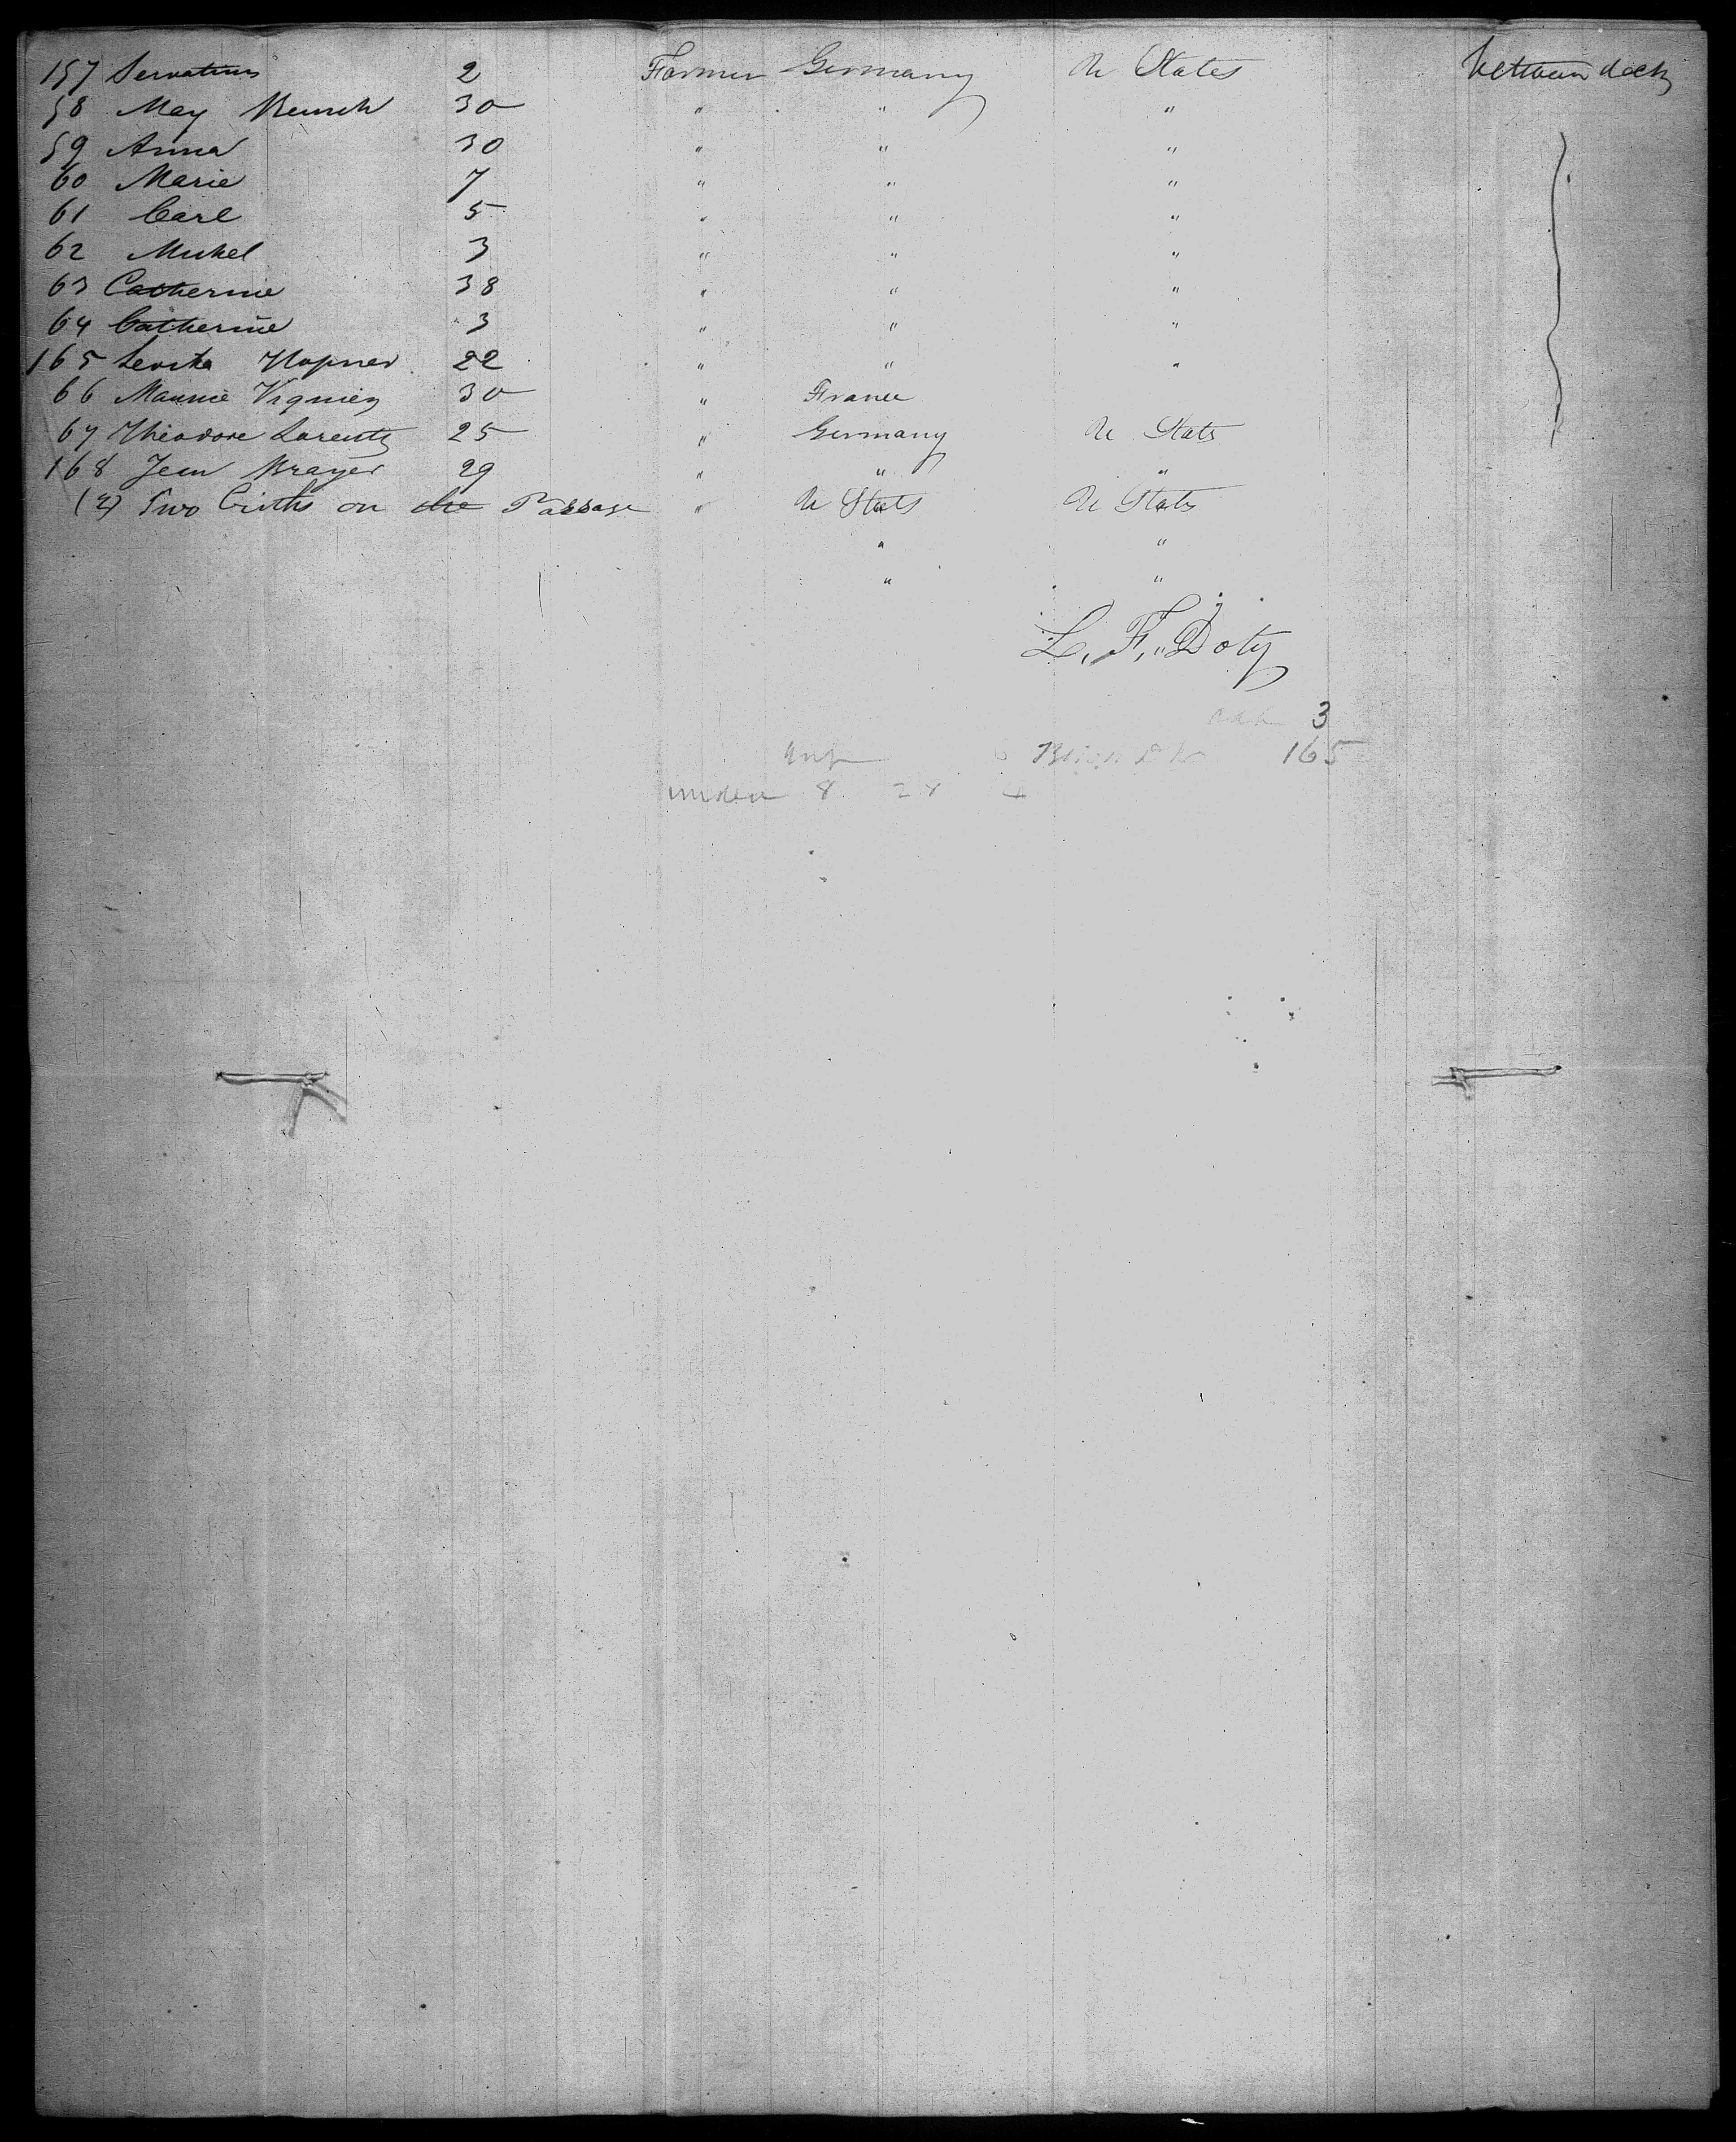 157 Servatius 2 Farmer Germany U States between decks
58 May Bensch 30 " " "
59 Anna 30 " " "
60 Marie 7 " " "
61 Carl 5 " " "
62 Michel 3 " " "
63 Catherine 38 " " "
64 Catherine 3 " " "
165 Hopner 22 " " "
66 30 " France
67 Theodore Lorentz 25 " Germany U States
168 Jean Brayer 29 " " "
(2) Two Births on the Passage " U States U States
" "
" "
L. F. Doty
3
165
under 8 28